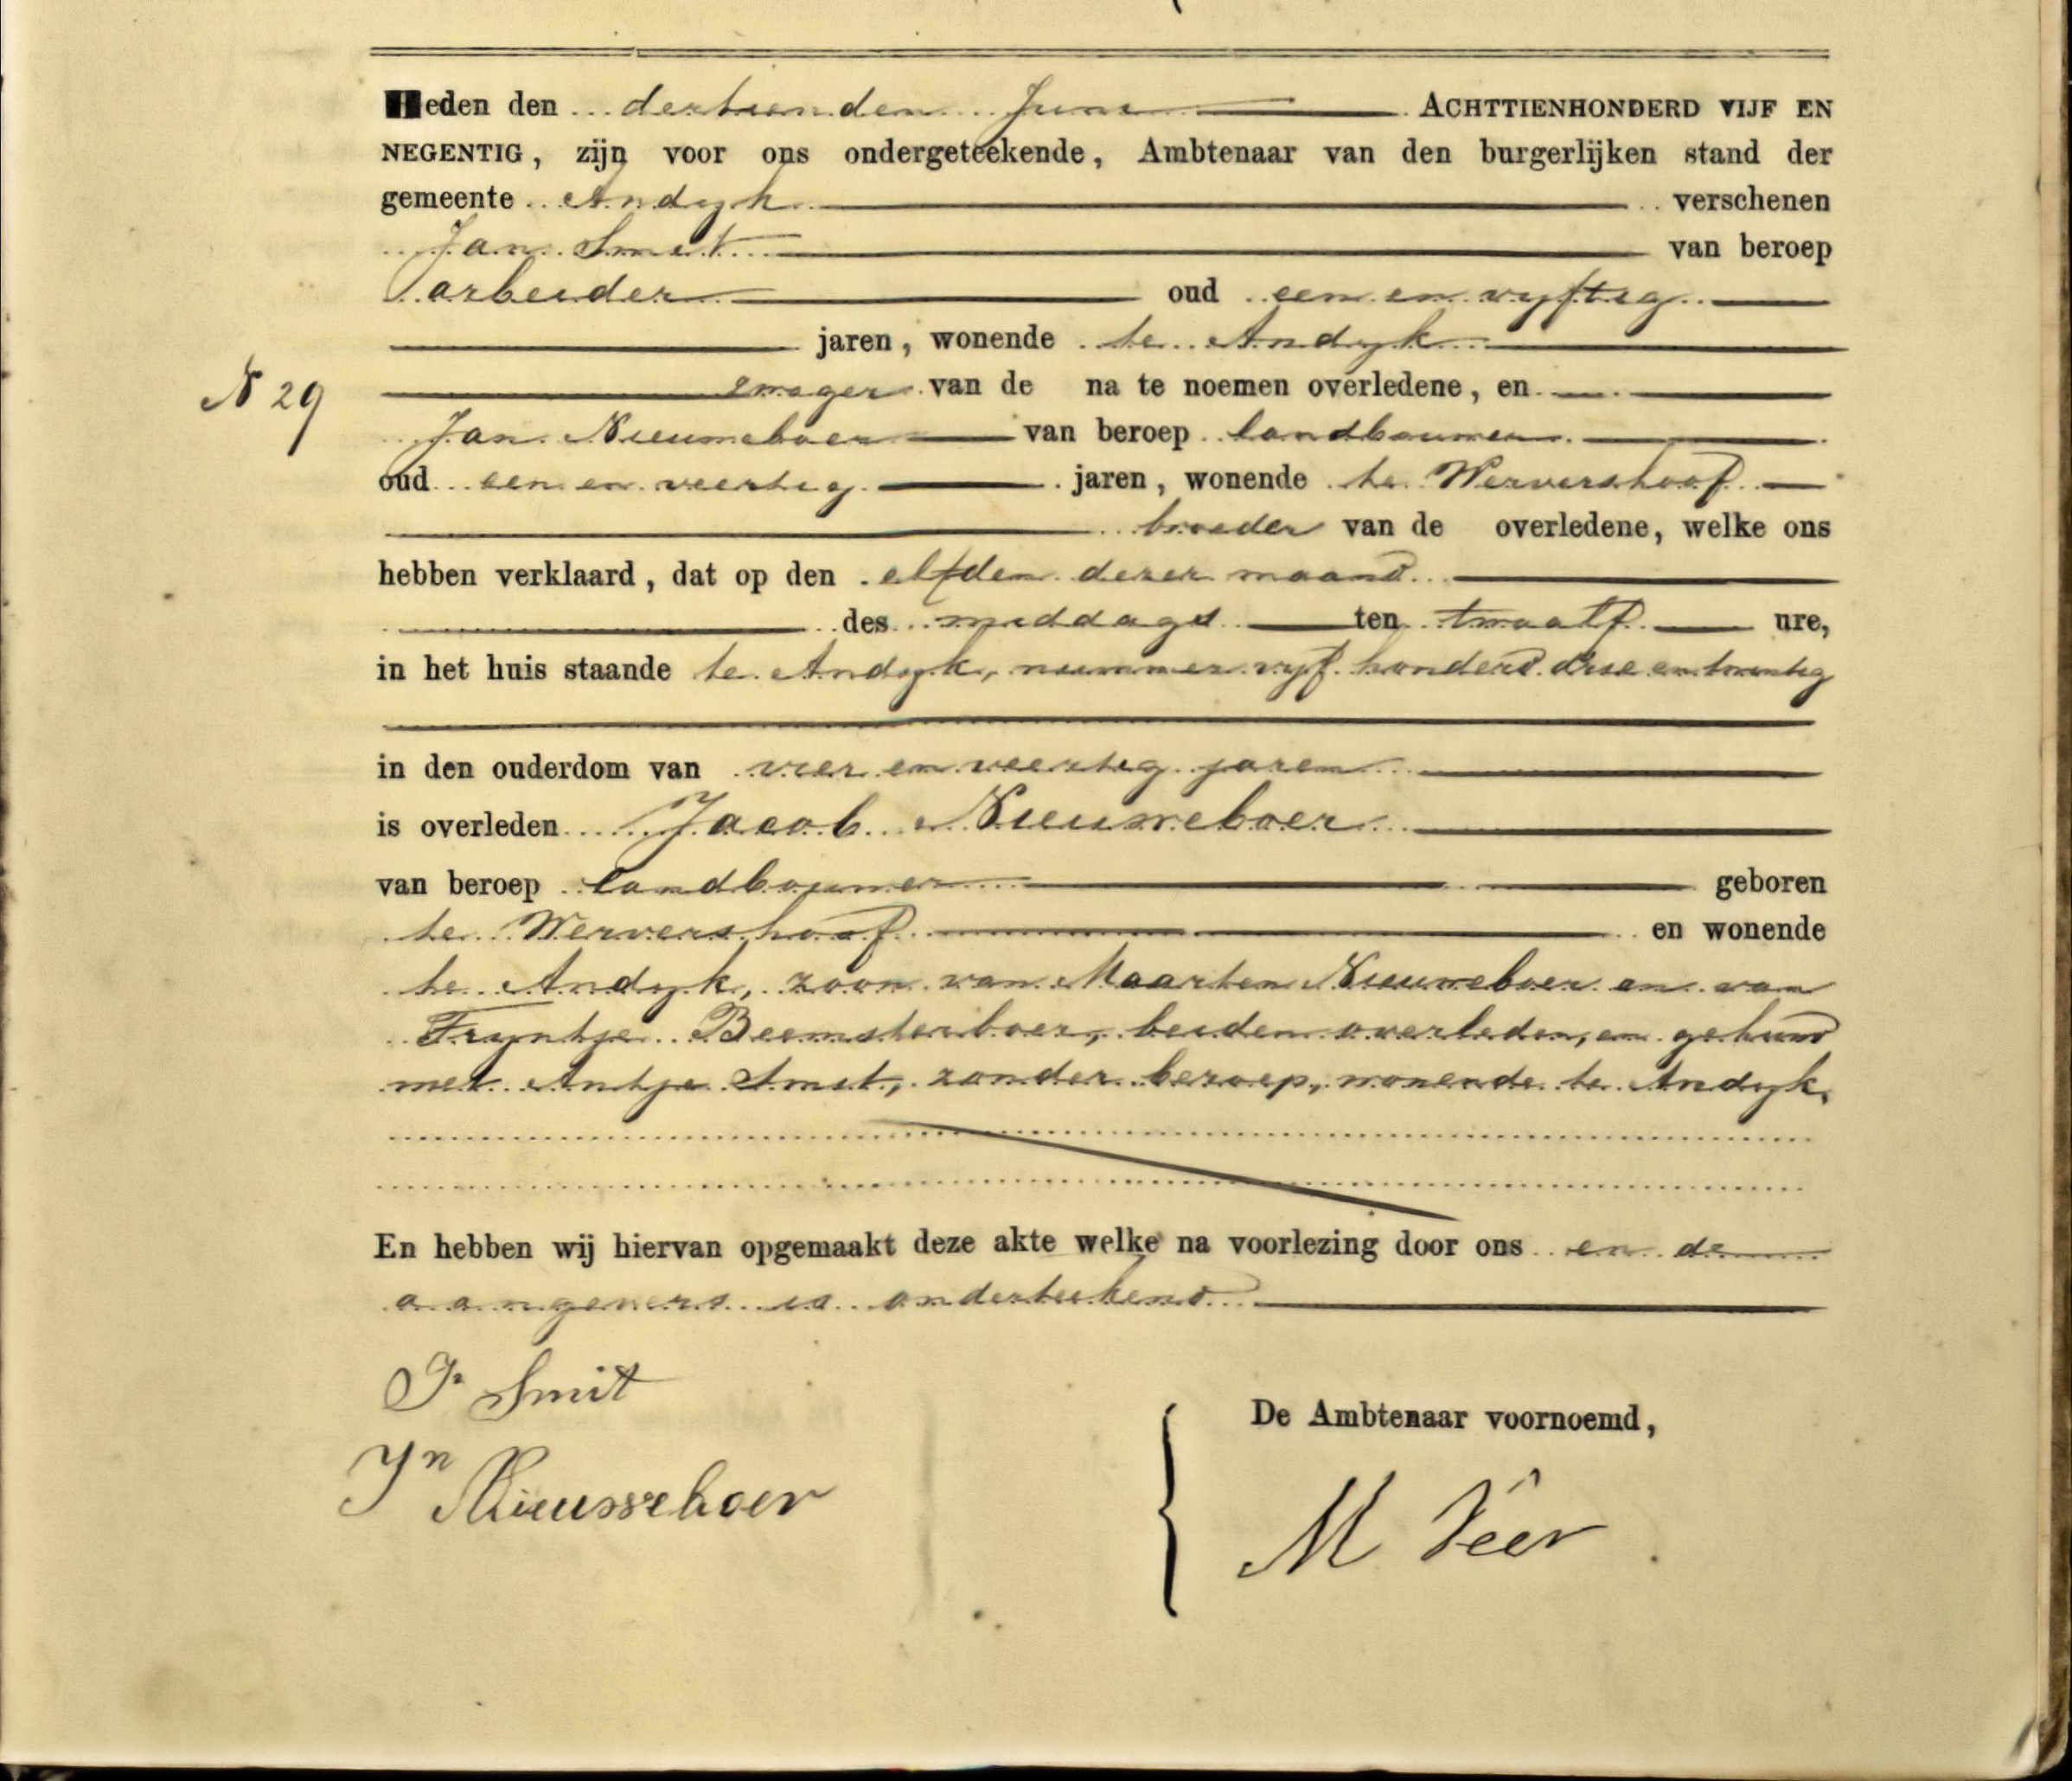 Heden den dertienden Juni ACHTTIENHONDERD VIJF EN
NEGENTIG, zijn voor ons ondergeteekende, Ambtenaar van den burgerlijken stand der
gemeente Andijk verschenen
Jan Smit van beroep
arbeider oud een en vijftig
jaren, wonende te Andijk
zwager van de na te noemen overledene, en
N 29
Jan Nieuweboer van beroep landbouwer
oud een en veertig jaren, wonende te Wervershoof
broeder van de overledene, welke ons
hebben verklaard, dat op den elfden dezer maand
des middags ten twaalf ure,
in het huis staande te Andijk, nummer vijf honderd drie en twintig
in den ouderdom van vier en veertig jaren
is overleden Jacob Nieuweboer
van beroep landbouwer geboren
te Wervershoof en wonende
te Andijk, zoon van Maarten Nieuweboer en van
Trijntje Beemsterboer, beiden overleden, en gehuwd
met Antje Smit, zonder beroep, wonende te Andijk.
En hebben wij hiervan opgemaakt deze akte welke na voorlezing door ons en de
aangevers is onderteekend
J. Smit
De Ambtenaar voornoemd,
Jn Nieuweboer
M Veer